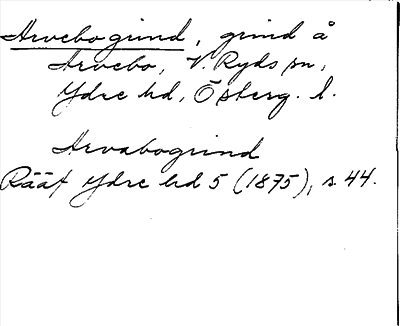 Arvebogrind, grind å
Arvebo, V. Ryds sn,
Ydre hd, Österg. l.
Arvabogrind
Rääf Ydre hd 5 (1875), s. 44.